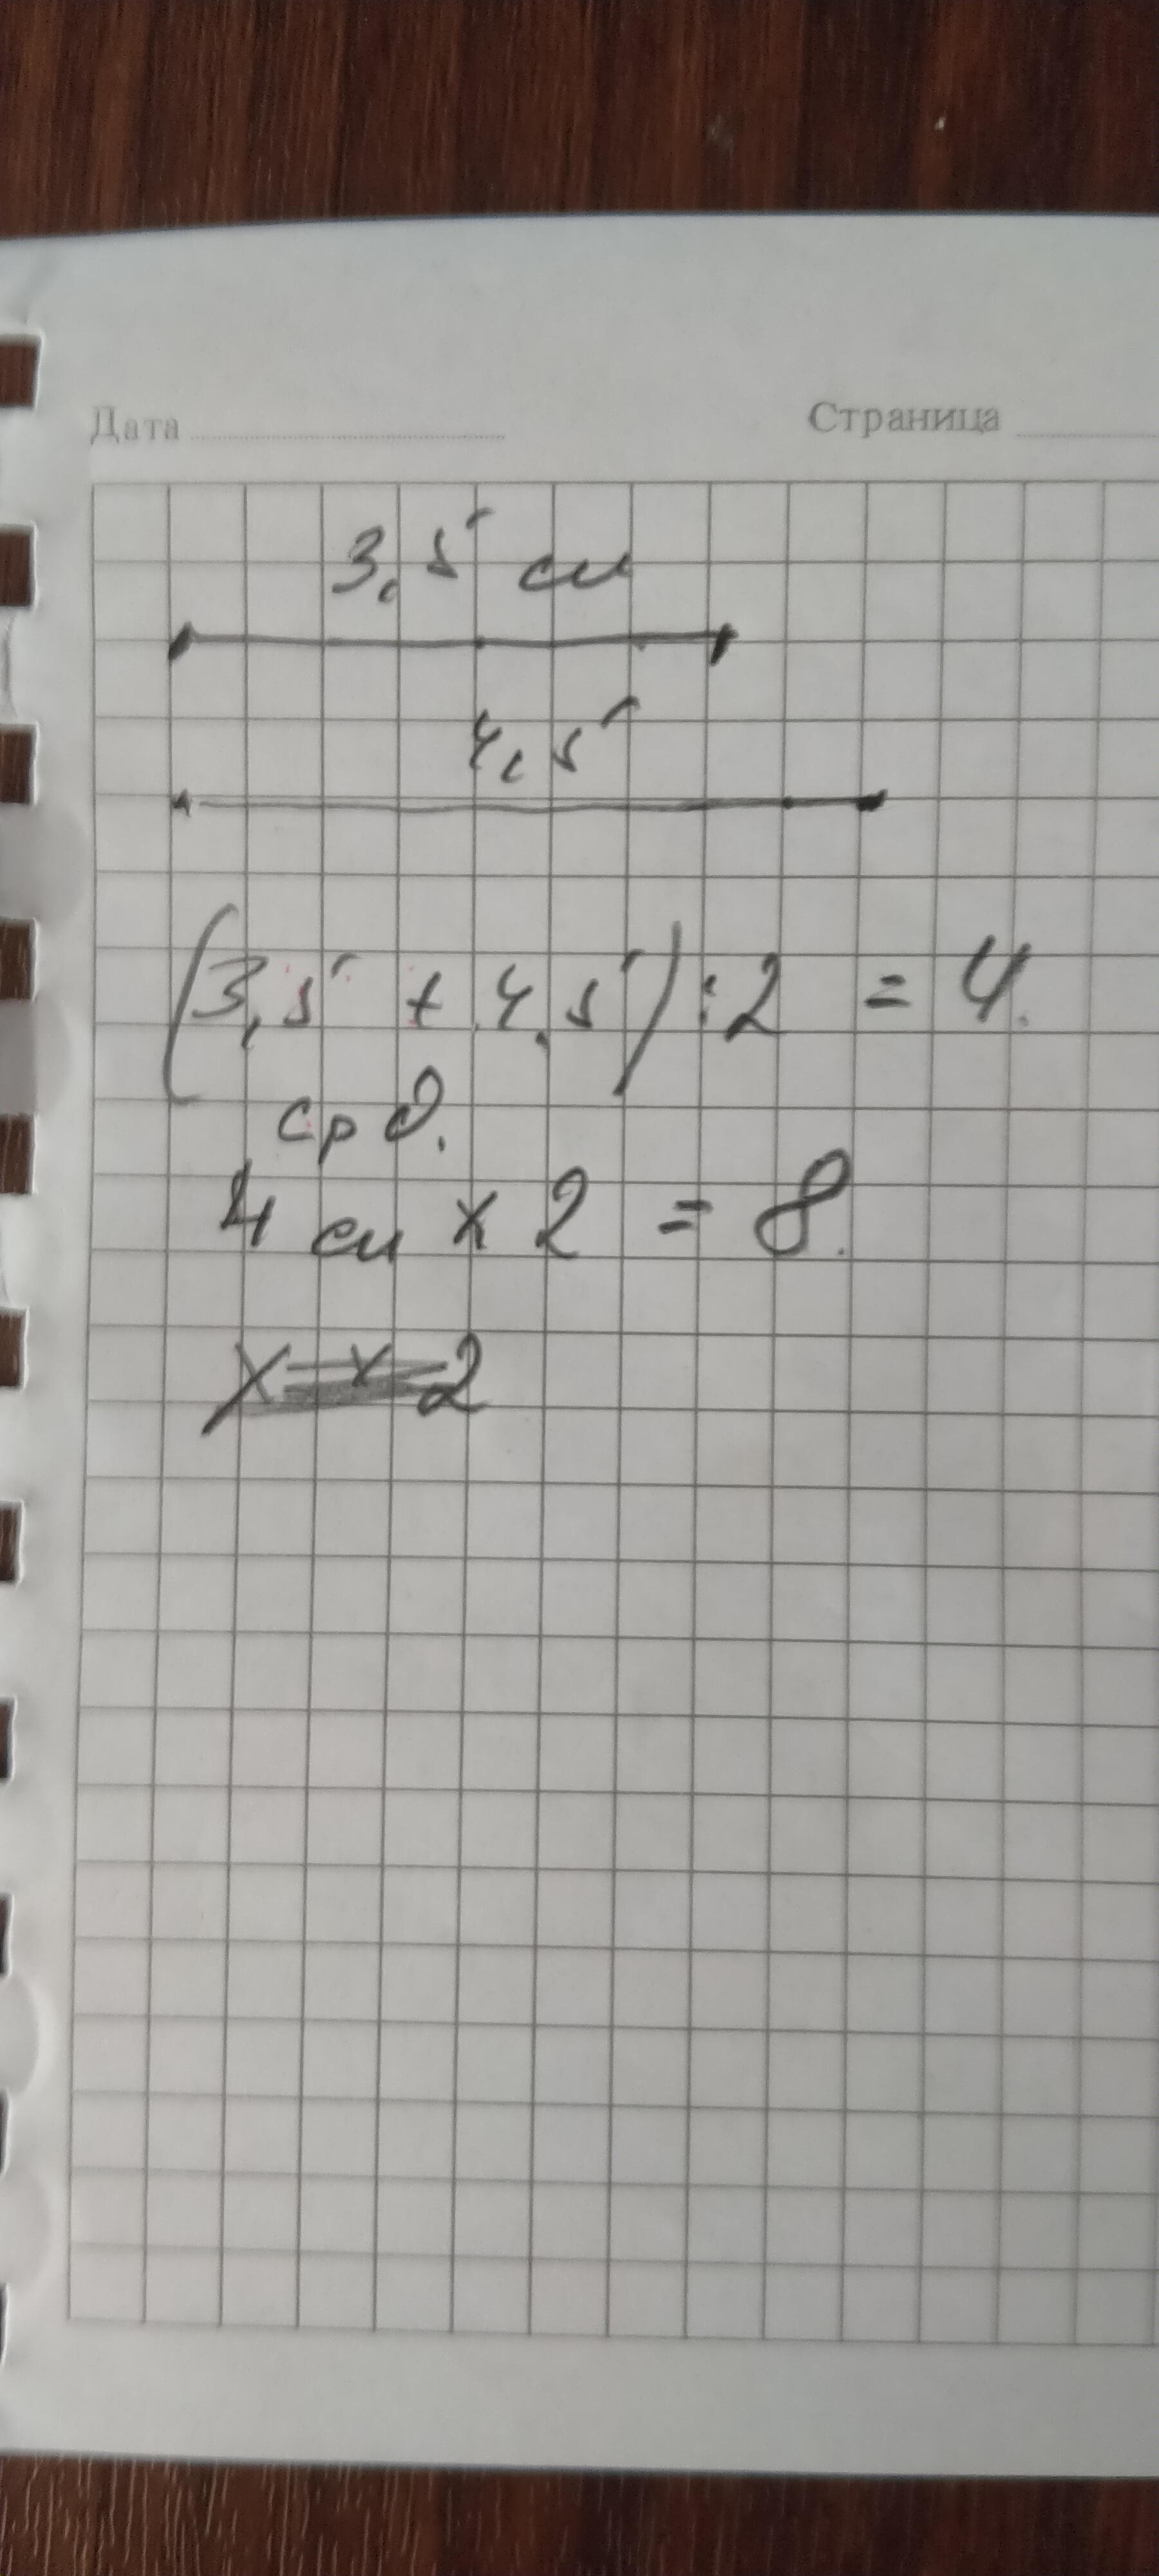 Дата Страница
3,5 см
4,5
(3,5 + 4,5) : 2 = 4.
ср д.
4 см x 2 = 8.
x = x 2